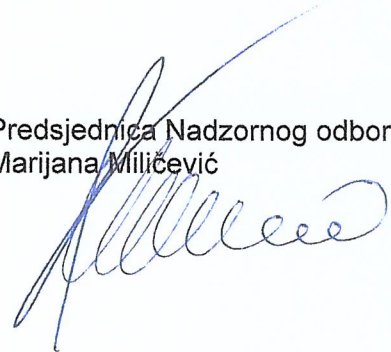 Predsjednica Nadzornog odbor
Marijana Miličević